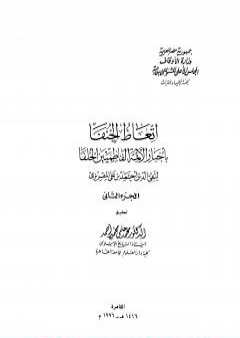 جمهورية مصر العربية
وزارة الأوقاف
المجلس الأعلى للشئون الإسلامية
لجنة إحياء التراث
اتعاظ الحنفا
بأخبار الأئمة الفاطميين الخلفا
لتقي الدين أحمد بن علي المقريزي
الجزء الثاني
تحقيق
الدكتور محمد حلمي محمد أحمد
أستاذ التاريخ الإسلامي
كلية دار العلوم جامعة القاهرة
القاهرة
١٤١٦ هـ - ١٩٩٦ م